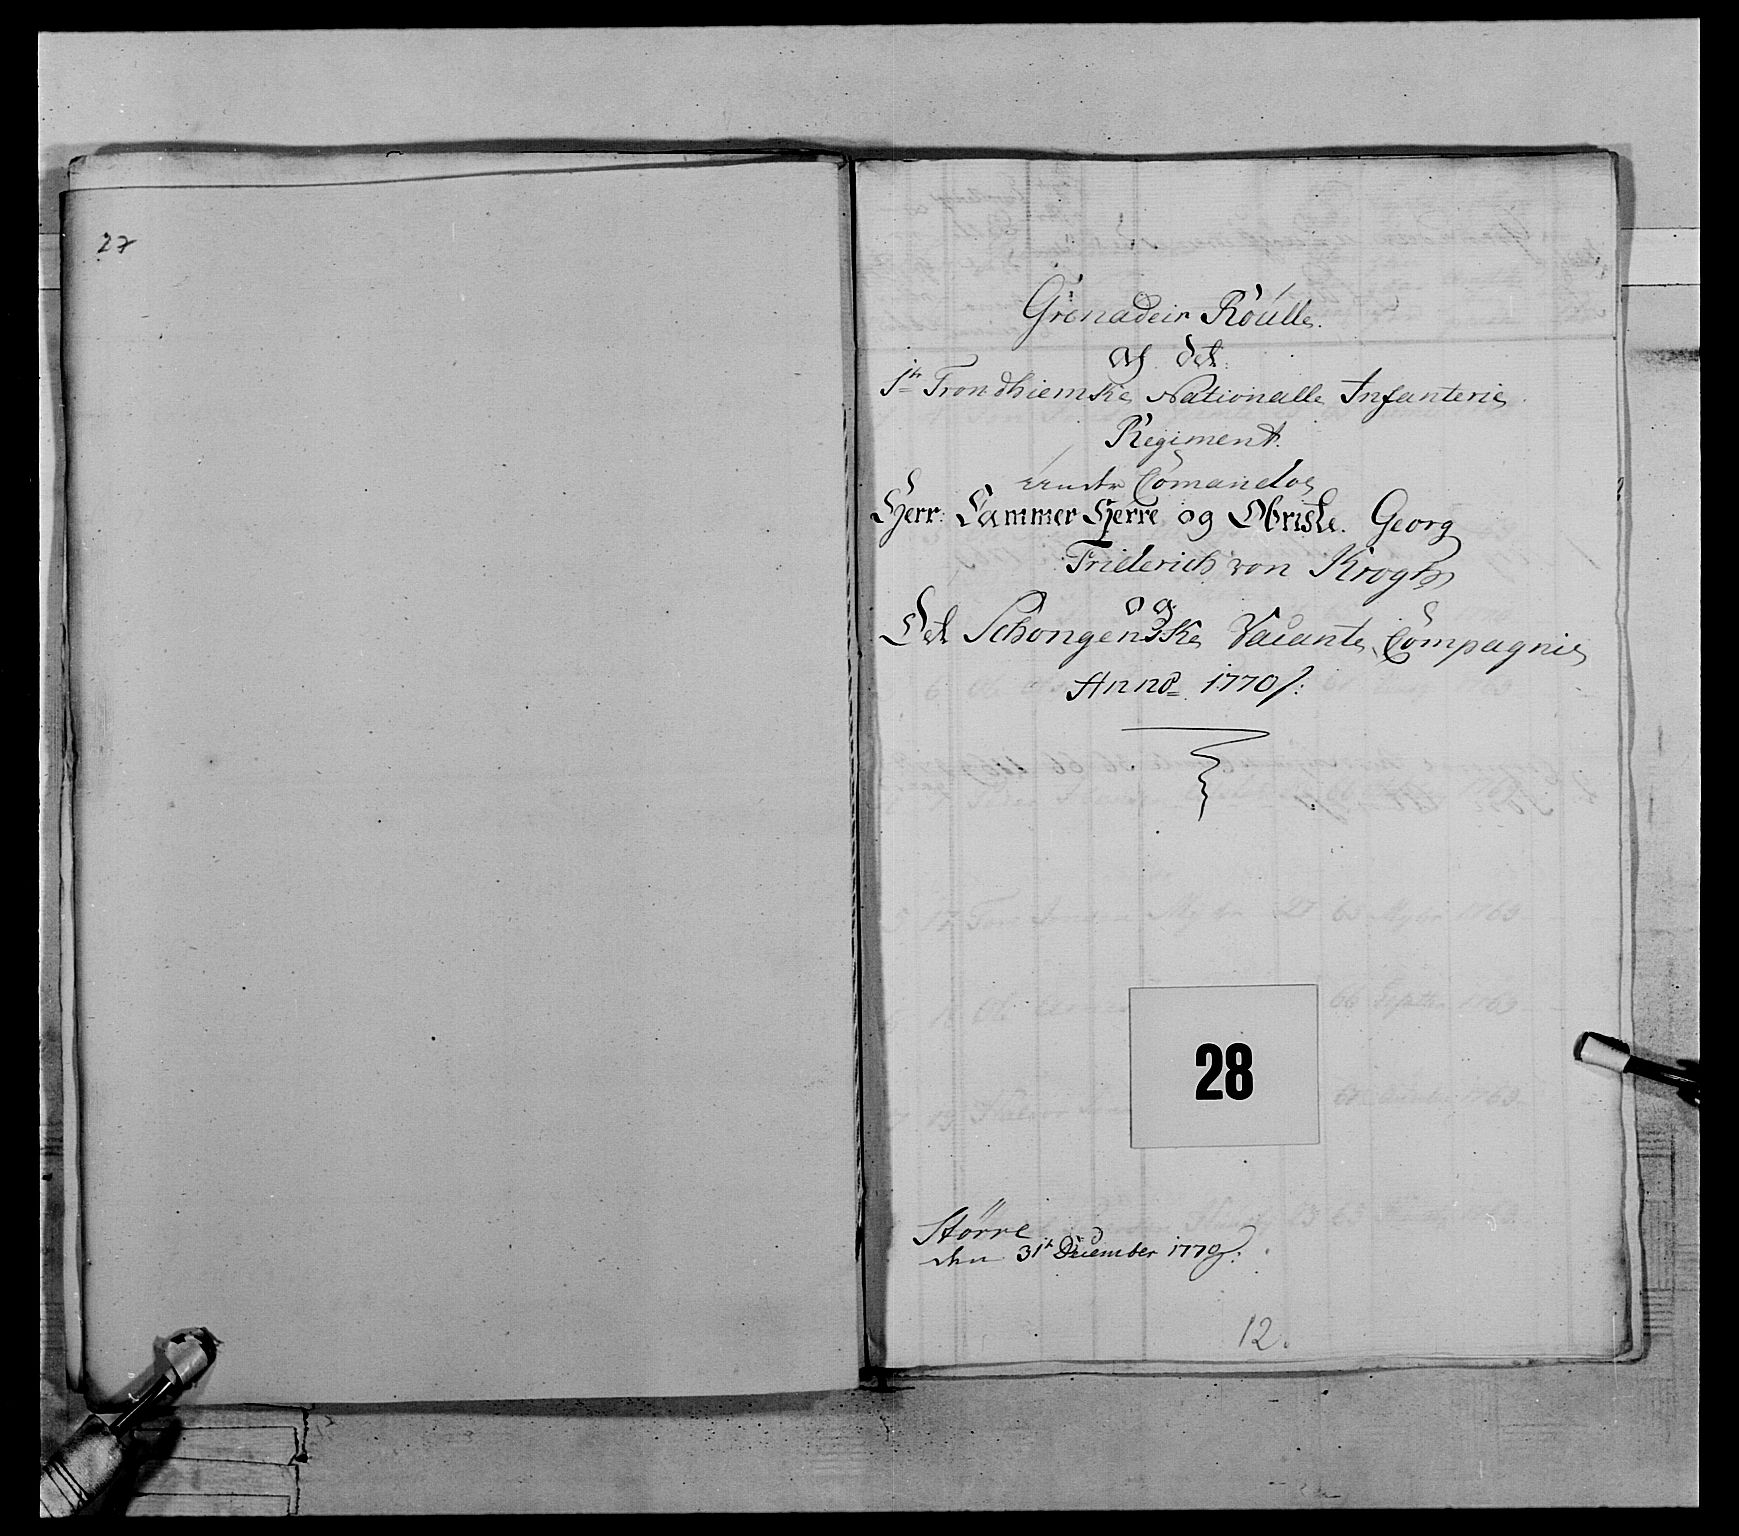 27
Grenadeir Roulle
af det
1te Trondhiemske Nationalle Infanterie
Regiment.
under Comando
Herr Cammer Herre og Obriste. Georg
Friderich von Krogh
og
Det Schongenske Vacante Compagnie
Anno 1770/:
28
Större
den 31te December 1770/:
12.